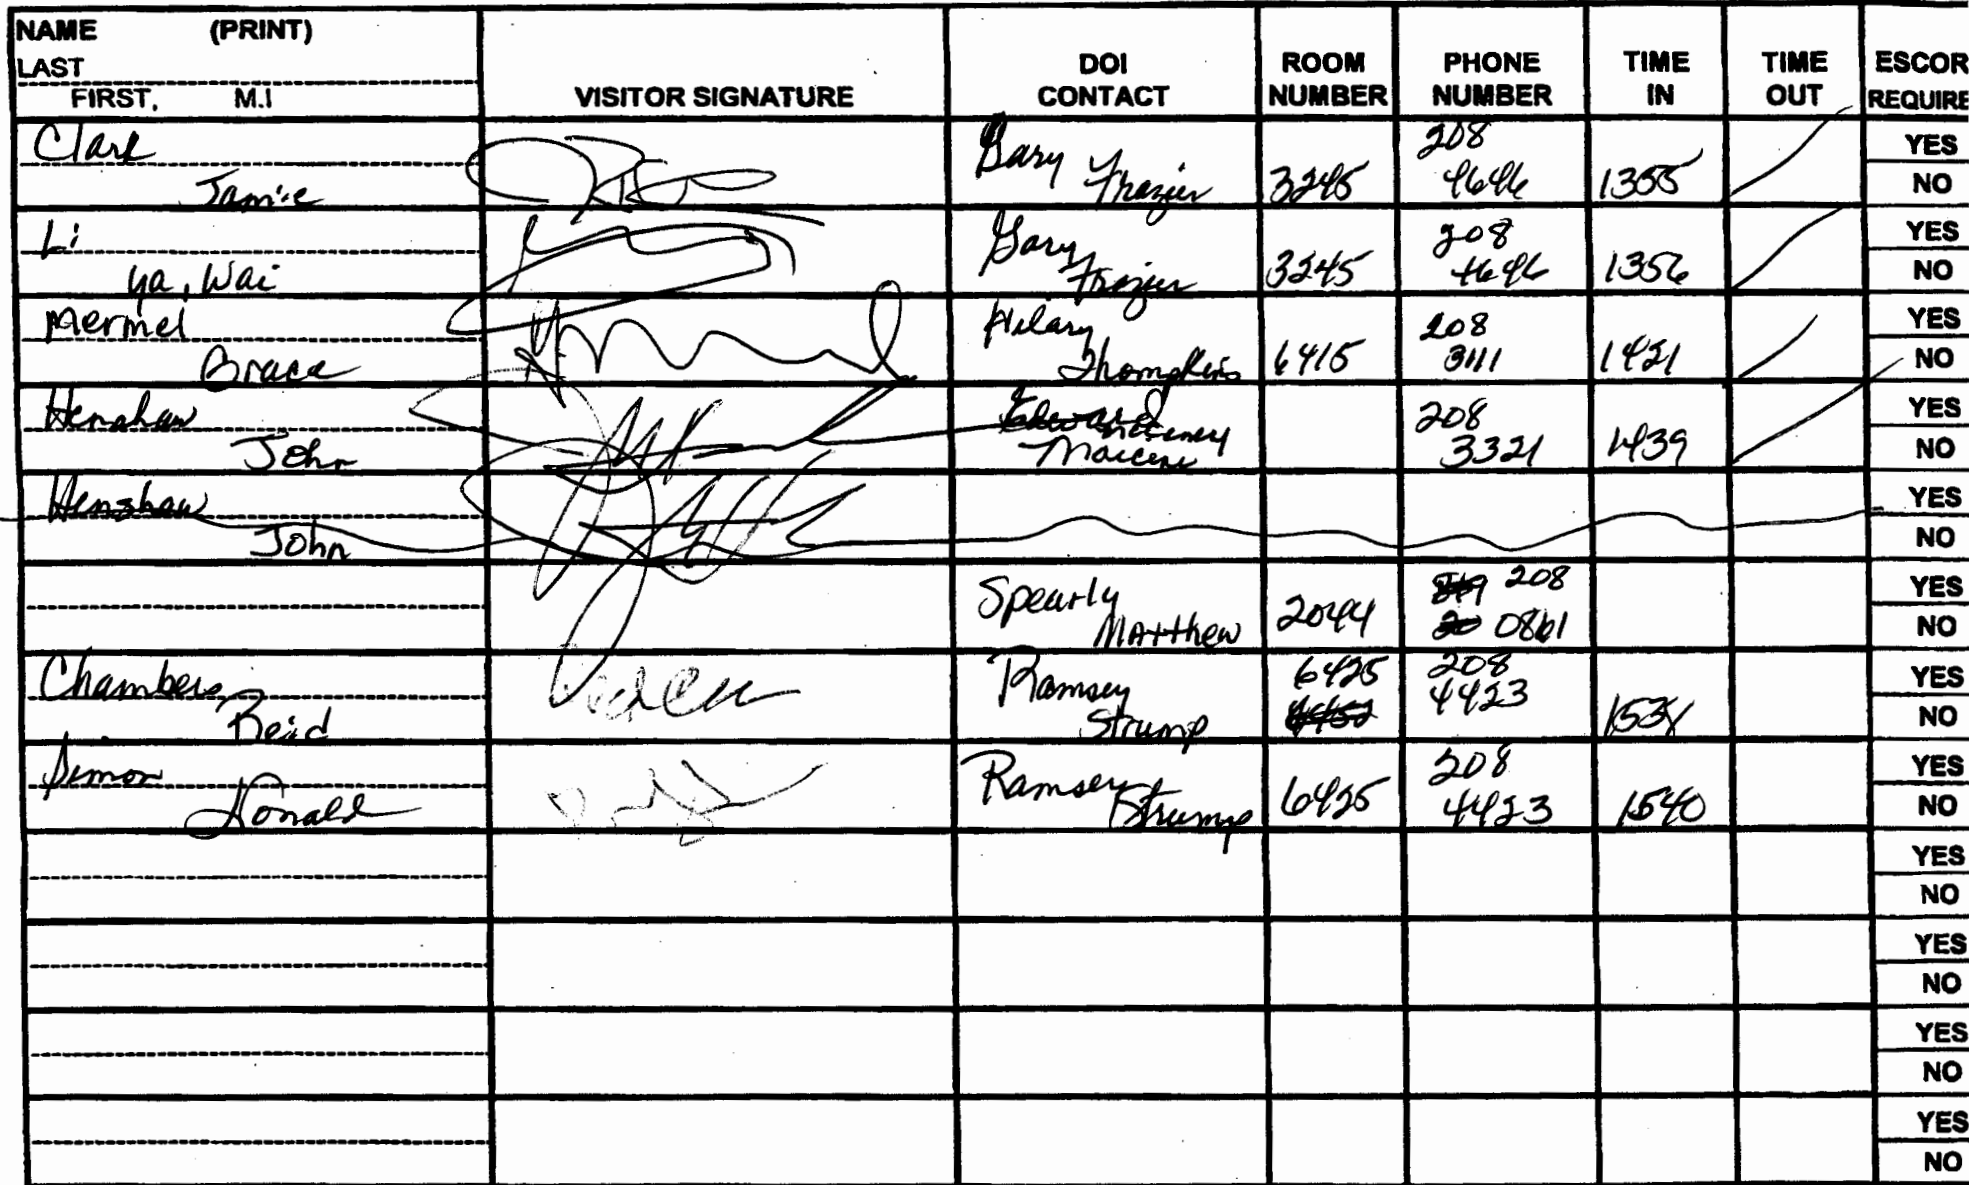 NAME (PRINT)
LAST
FIRST, M.I
VISITOR SIGNATURE
DOI
CONTACT
ROOM
NUMBER
PHONE
NUMBER
TIME
IN
TIME
OUT
ESCOR
REQUIRE
Clark
Jamie
Gary
Frazier
3245
208
4646
1355
YES
NO
Li
Ya, Wai
Gary
Frazier
3245
208
4646
1356
YES
NO
Mermel
Grace
Hilary
Thompkins
6415
208
3111
1421
YES
NO
Henshaw
John
208
3321
1439
YES
NO
Henshaw
John
YES
NO
Spearly
Matthew
2044
208
YES
NO
Chambers
Reid
Ramsey
Strump
6425
208
4423
YES
NO
Simon
Donald
Ramsey
Strump
6425
208
4423
1540
YES
NO
YES
NO
YES
NO
YES
NO
YES
NO